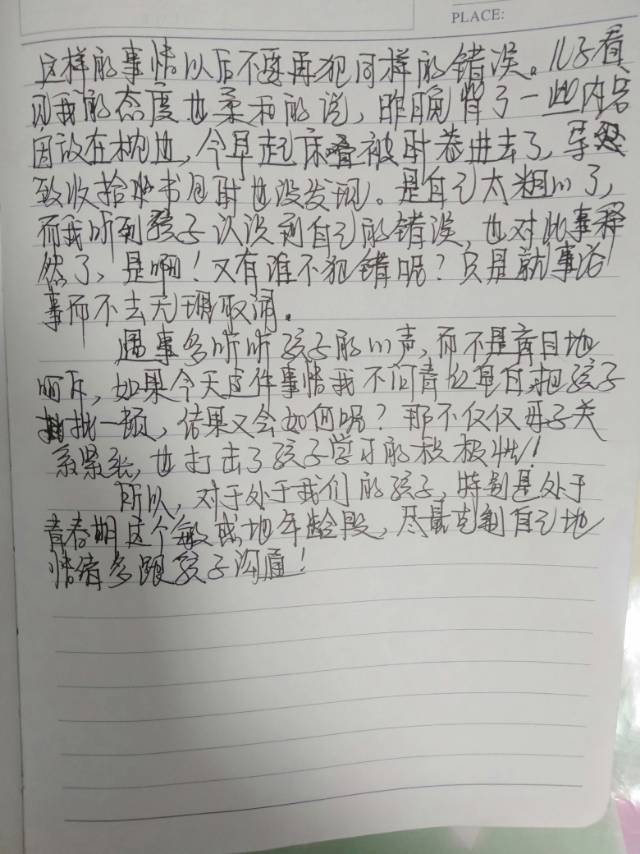 PLACE:
这样的事情以后不要再犯同样的错误。儿子看
见我的态度也柔和的说，昨晚背了一些内容
因放在枕边，今早起床叠被时卷进去了，导
致收拾书包时也没发现。是自己太粗心了，
而我听到孩子认识到自己的错误，也对此事释
然了，是啊！又有谁不犯错呢？只是就事论
事而不去无理取闹。
遇事多听听孩子的心声，而不是盲目地
呵斥，如果今天这件事情我不问青红皂白把孩子
批一顿，结果又会如何呢？那不仅仅母子关
系紧张，也打击了孩子学习的积极性！
所以，对于处于我们的孩子，特别是处于
青春期这个敏感地年龄段，尽量克制自己地
情绪多跟孩子沟通！